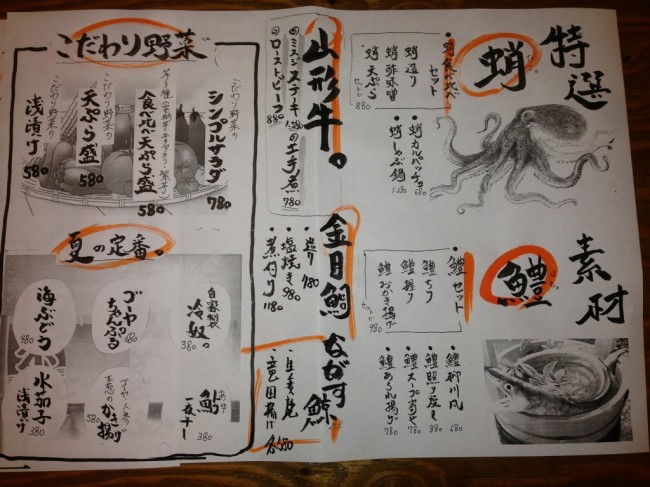 特選
蛸
・蛸食べ比べ
セット
蛸造り
蛸酢味噌
蛸天ぷら
セットで 880
・蛸カルパッチョ 680
・蛸しゃぶ鍋 1,280
素材
鱧
・鱧セット
鱧ちり
鱧握り
鱧おかき揚げ
セットで 980
鱧柳川風 680
鱧照り焼き 890
鱧スープ寄せ 780
鱧あられ揚げ 780
山形牛。
ミスジステーキ 1,580
土手煮 780
ローストビーフ 880
金目鯛
・造り 780
・塩焼き 980
・煮付け 1180
ながす鯨
・生姜焼
・竜田揚げ 各580
こだわり野菜
こだわり野菜の
シンプルサラダ 780
食べ比べ天ぷら盛 580
こだわり野菜の
天ぷら盛 580
浅漬け 580
夏の定番。
自家製
冷奴 380
ゴーヤ
ちゃんぷる 680
海ぶどう 480
鮎 あゆ
一夜干し 380
ゴーヤ、人参
かき揚げ 580
水茄子
浅漬け 380